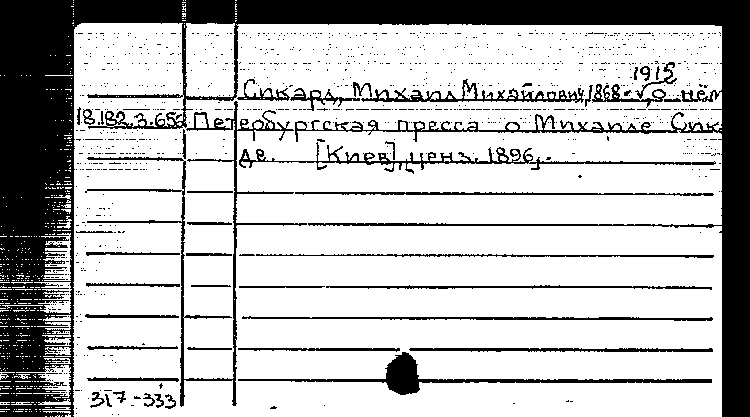 1915
Сикард, Михаил Михайлович, 1868-, о нём
18.182.3.656 Петербургская пресса о Михаиле Сика
де. [Киев], ценз. 1896,.
317-333